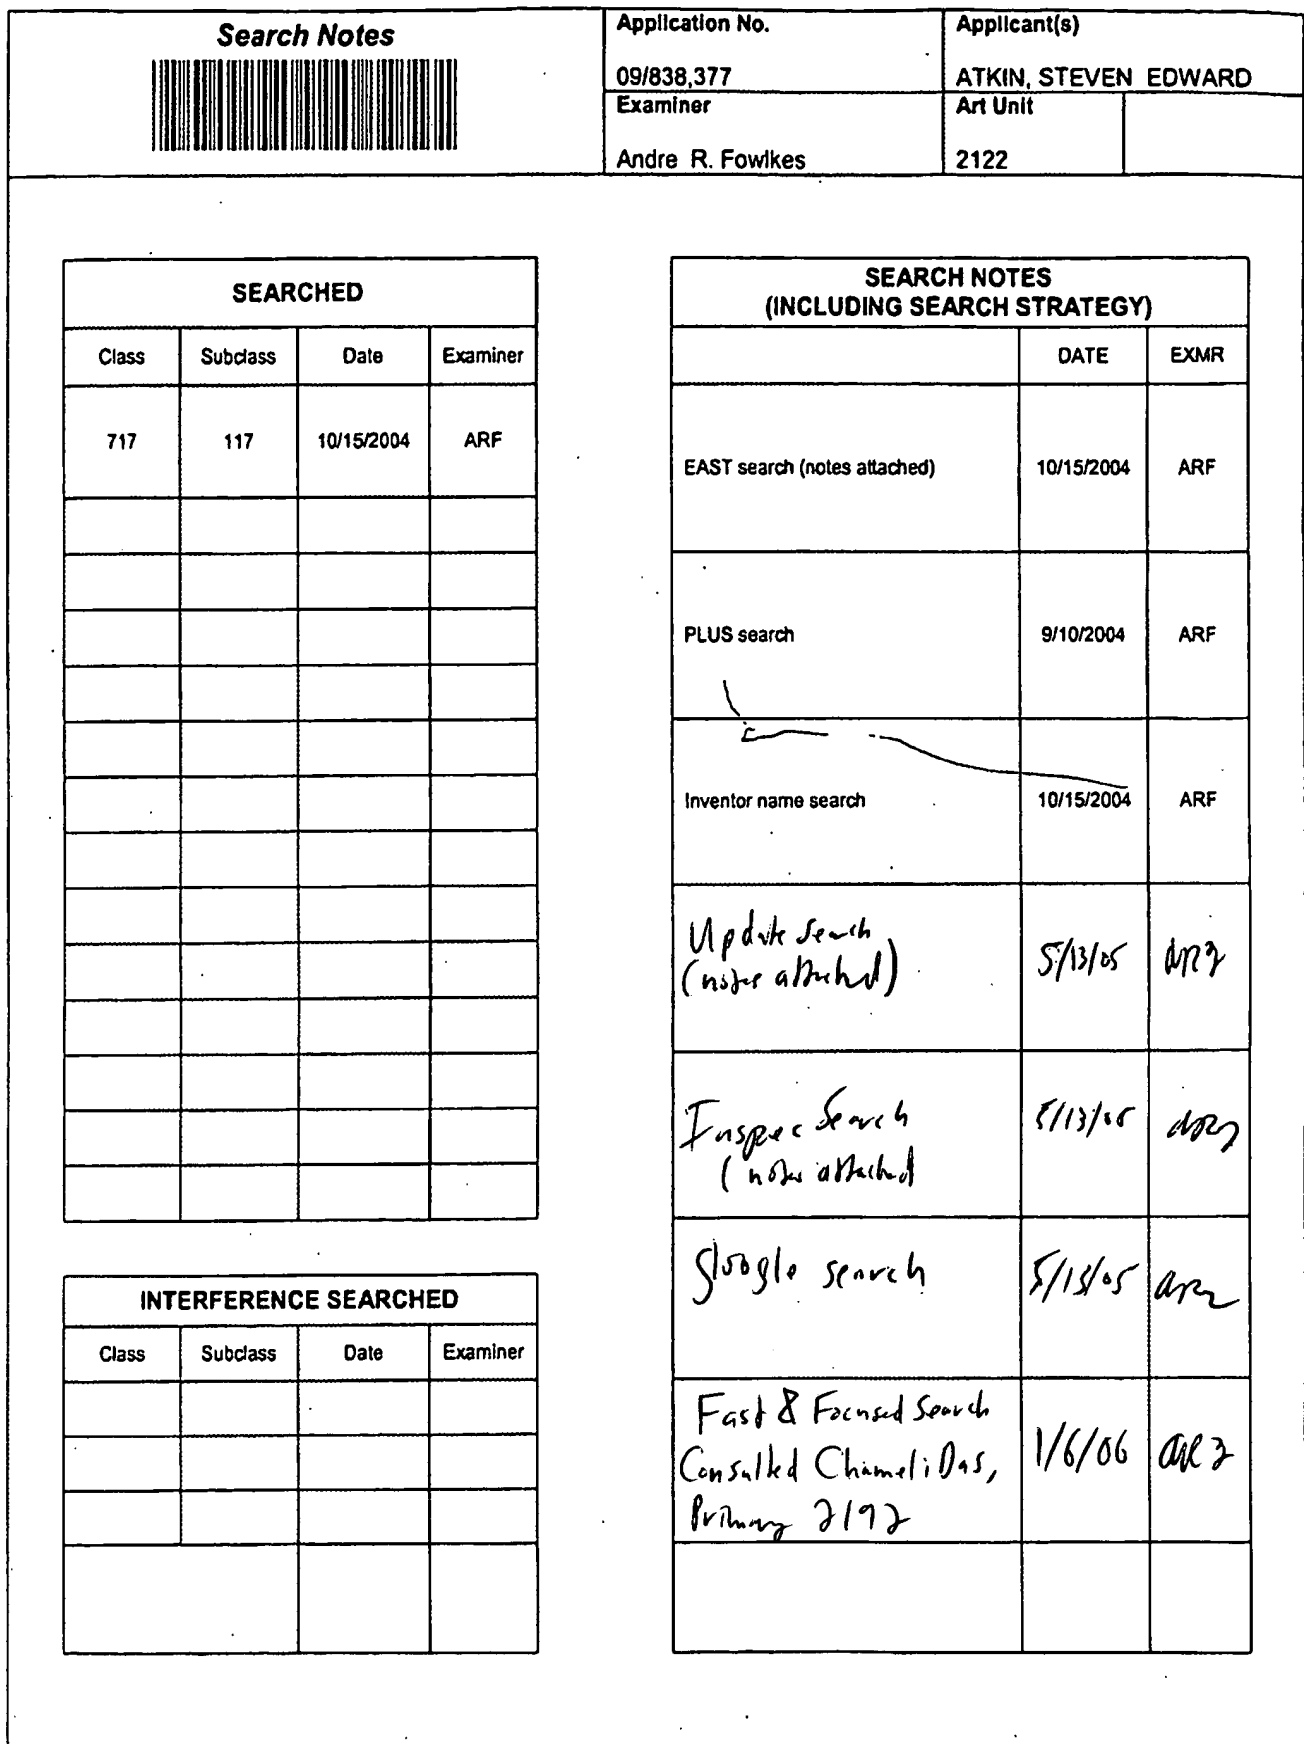 Search Notes
Application No.
09/838,377
Applicant(s)
ATKIN, STEVEN EDWARD
Examiner
Andre R. Fowlkes
Art Unit
2122
SEARCHED
Class Subclass Date Examiner
717 117 10/15/2004 ARF
INTERFERENCE SEARCHED
Class Subclass Date Examiner
SEARCH NOTES
(INCLUDING SEARCH STRATEGY)
DATE EXMR
EAST search (notes attached) 10/15/2004 ARF
PLUS search 9/10/2004 ARF
Inventor name search 10/15/2004 ARF
Update Search
(notes attached) 5/13/05 ARF
Inspec Search 5/13/05 ARF
(notes attached
Google search 5/13/05 ARF
Fast & Focused Search
Consulted Chameli Das, 1/6/06 ARF
Primary 2192